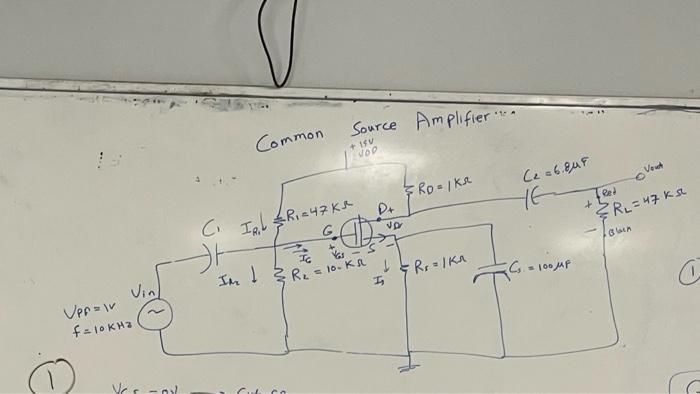 Common Source Amplifier
+15V
VDD
RD = 1KΩ
C2 = 6.8μF
Vout
Red
+
RL = 47KΩ
Black
-
C1
IR1 ↓
R1 = 47KΩ
G
D+
VD
IG
+ VGS - S -
IR2 ↓
R2 = 10KΩ
IS ↓
RS = 1KΩ
CS = 100μF
Vin
VPP = 1V
f = 10KHz
~
1
1